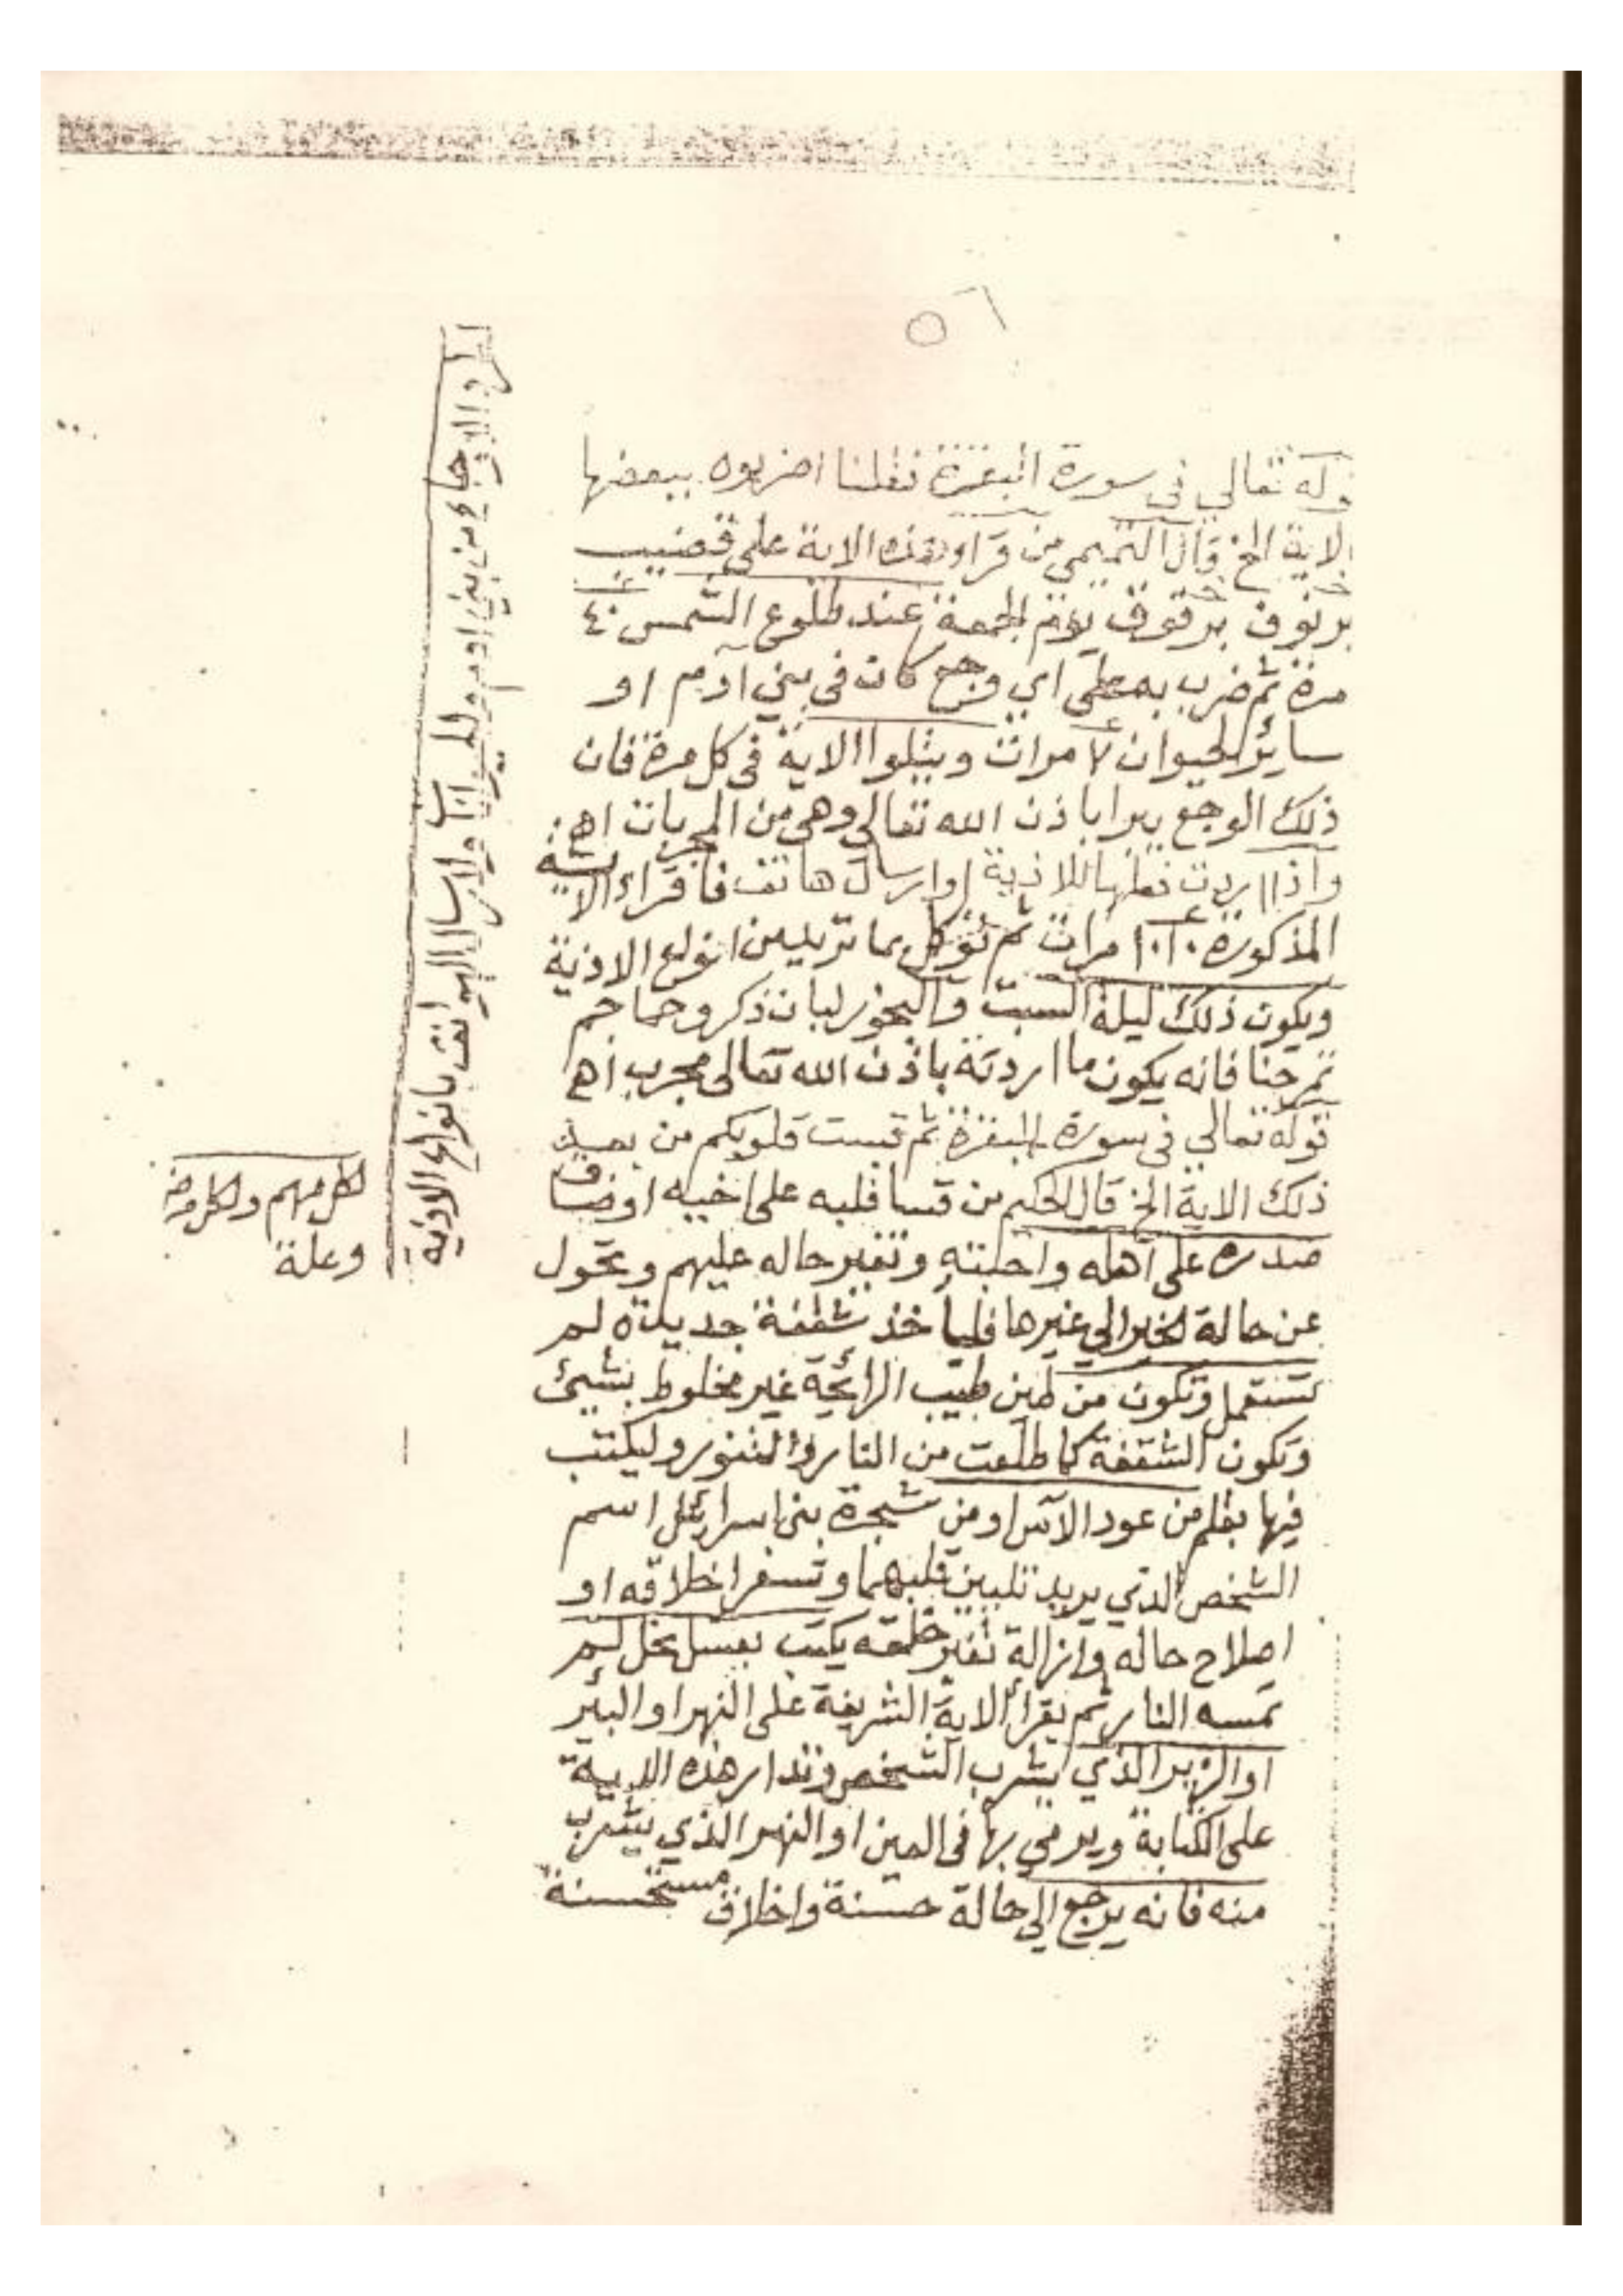 ٥٦
قوله تعالي في سورة البقرة فقلنا اضربوه ببعضها
الاية الخ قال التميمي من قراء هذه الاية علي قضيب
برقوق يوم الجمعة عند طلوع الشمس ٤٠
مرة ثم ضرب به علي اي وجع كان في بني آدم او
ساير الحيوان ٧ مرات ويتلوا الاية في كل مرة فان
ذلك الوجع يبرا باذن الله تعالي وهي من المجربات اهـ
واذا اردت فعلها للاذية او ارسال هاتف فاقراء الاية
المذكورة ١٠١٠ مرات ثم توكل بما تريد من انواع الاذية
ويكون ذلك ليلة السبت والبخور لبان ذكر وحماجم
تمرحنا فانه يكون ما اردته باذن الله تعالى مجرب اهـ
قوله تعالي في سورة البقرة ثم قست قلوبكم من بعد
ذلك الاية الخ قال الحكيم من قسا قلبه على اخيه او ضاق
صدره على اهله واحبته وتغير حاله عليهم وتحول
عن حالة الخير الي غيرها فليأخذ شقفة جديدة لم
تستعمل وتكون من طين طيب الرائحة غير مخلوط بشيئ
وتكون الشقفة كما طلعت من النار والتنور وليكتب
فيها بقلم من عود الآس او من شجرة بني اسرائيل اسم
الشخص الذي يريد تليين قلبهما و اخلاقه او
اصلاح حاله وازالة تغير خلقه يكتب بعسل نحل لم
تمسه النار ثم يقرأ الاية الشريفة على النهر او البئر
او الزير الذي يشرب الشخص وتدار هذه الاية
على الكتابة ويرمي بها في العين او النهر الذي يشرب
منه فانه يرجع الي حالة حسنة واخلاق مستحسنة
اوجاع من بني ادم والحيوانات ولارسال الهواتف بانواع الاذية
لكل مهم ولكل مرض
وعلة